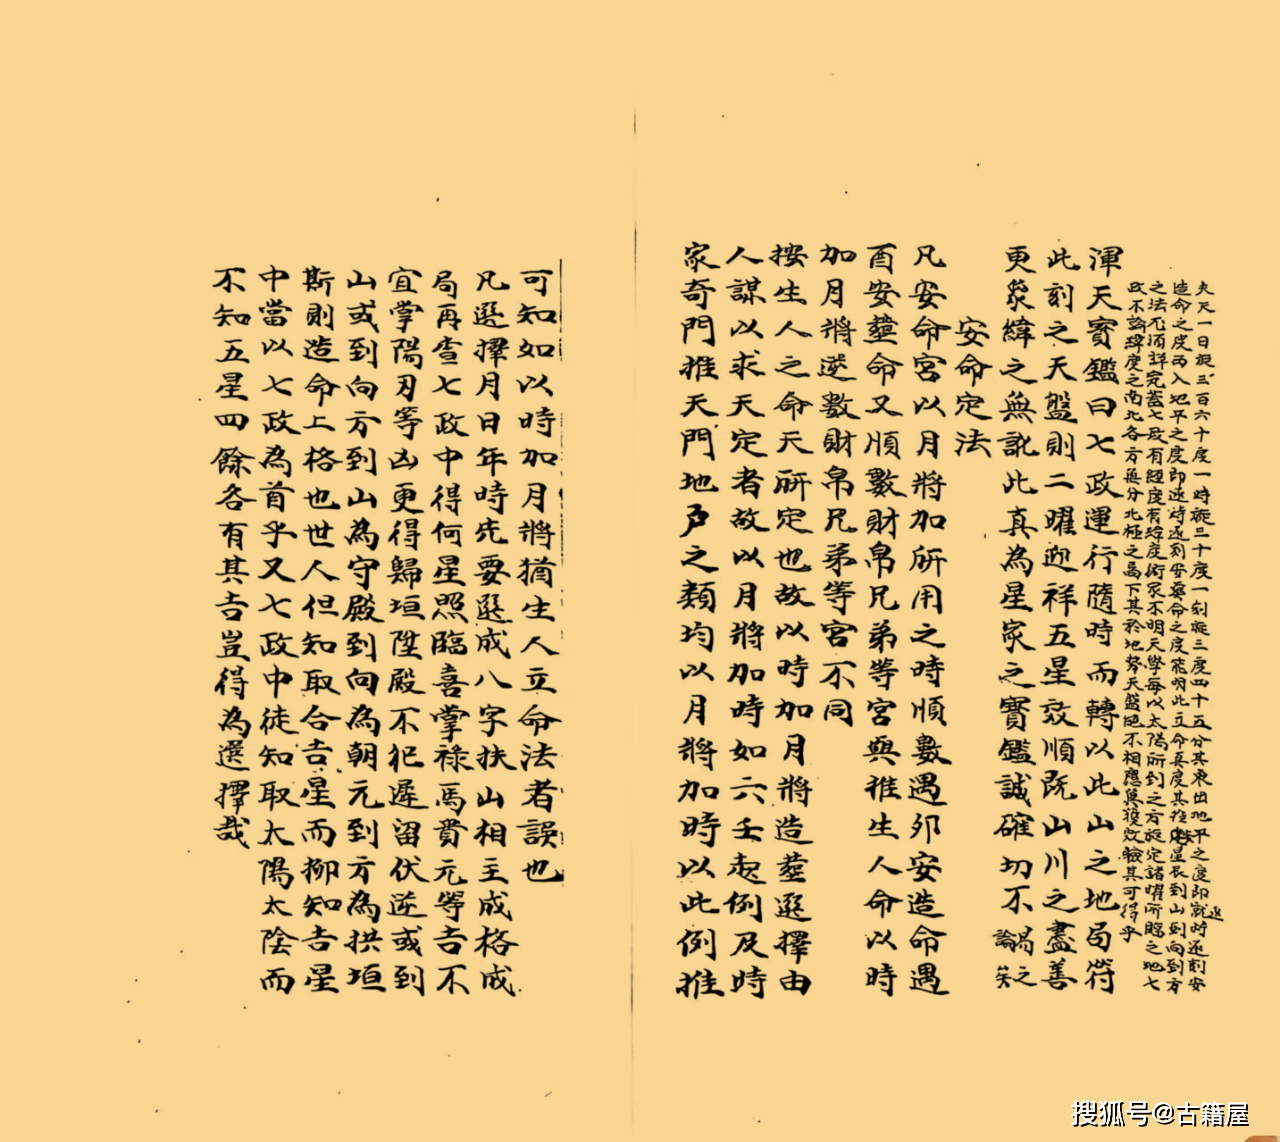 夫天一日旋三百六十度一時旋三十度一刻旋三度四十五分其東出地平之度即就時逐刻安
造命之度西入地平之度即逐時逐刻安葬命之度能明此立命真度其挨度量辰到山到向到方
之法尤須詳究蓋七政有經度有緯度術家不明天學每以太陽所到之方旋定諸曜所臨之地七
政不論緯度之南北各方無分北極之高下其於地勢天盤絕不相應與獲效驗其可得乎
渾天寳鑑曰七政運行隨時而轉以此山之地局符
此刻之天盤則二曜迎祥五星效順既山川之盡善
更象緯之無訛此真為星家之寳鑑誠確切不易之論矣
安命定法
凡安命宮以月將加所用之時順數遇夘安造命遇
酉安塟命又順數財帛兄弟等宮與推生人命以時
加月將逆數財帛兄弟等宮不同
按生人之命天所定也故以時加月將造塟選擇由
人謀以求天定者故以月將加時如六壬起例及時
家奇門推天門地户之類均以月將加時以此例推
可知如以時加月將猶生人立命法者誤也
凡選擇月日年時先要選成八字扶山相主成格成
局再查七政中得何星照臨喜掌祿馬貴元等吉不
宜掌陽刃等凶更得歸垣陞殿不犯遲留伏逆或到
山或到向方到山為守殿到向為朝元到方為拱垣
斯則造命上格也世人但知取合吉星而抑知吉星
中當以七政為首乎又七政中徒知取太陽太陰而
不知五星四餘各有其吉豈得為選擇哉
搜狐号@古籍屋